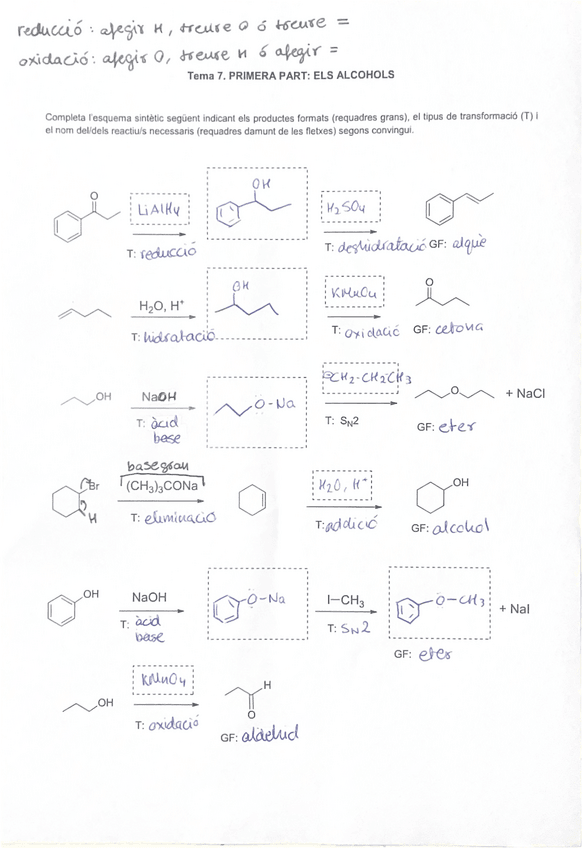 reducció: afegir H, treure O ó treure =
oxidació: afegir O, treure H ó afegir =
Tema 7. PRIMERA PART: ELS ALCOHOLS
Completa l'esquema sintètic següent indicant els productes formats (requadres grans), el tipus de transformació (T) i
el nom del/dels reactiu/s necessaris (requadres damunt de les fletxes) segons convingui.
O
LiAlH4
OH
H2SO4
T: reducció
T: deshidratació GF: alquè
H2O, H+
OH
KMnO4
O
T: hidratació
T: oxidació GF: cetona
OH
NaOH
O-Na
CH2-CH2CH3
O
+ NaCl
T: àcid
base
T: SN2
GF: eter
base gran
Br
(CH3)3CONa
H
H2O, H+
OH
T: eliminació
T: addició
GF: alcohol
OH
NaOH
O-Na
I–CH3
O-CH3
+ NaI
T: àcid
base
T: SN2
GF: eter
KMnO4
OH
H
O
T: oxidació
GF: aldehid